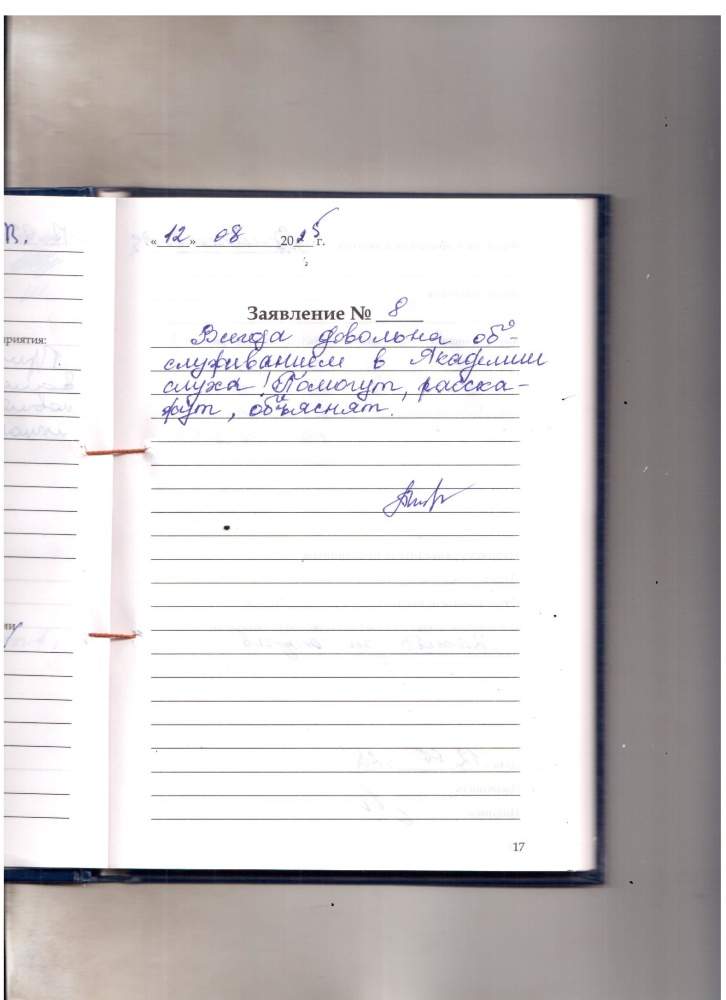 В.
риятия:
ии
« 12 » 08 2025 г.
Заявление № 8
Всегда довольна об-
служиванием в Академии
слуха! Помогут, расска-
жут, объяснят.
17